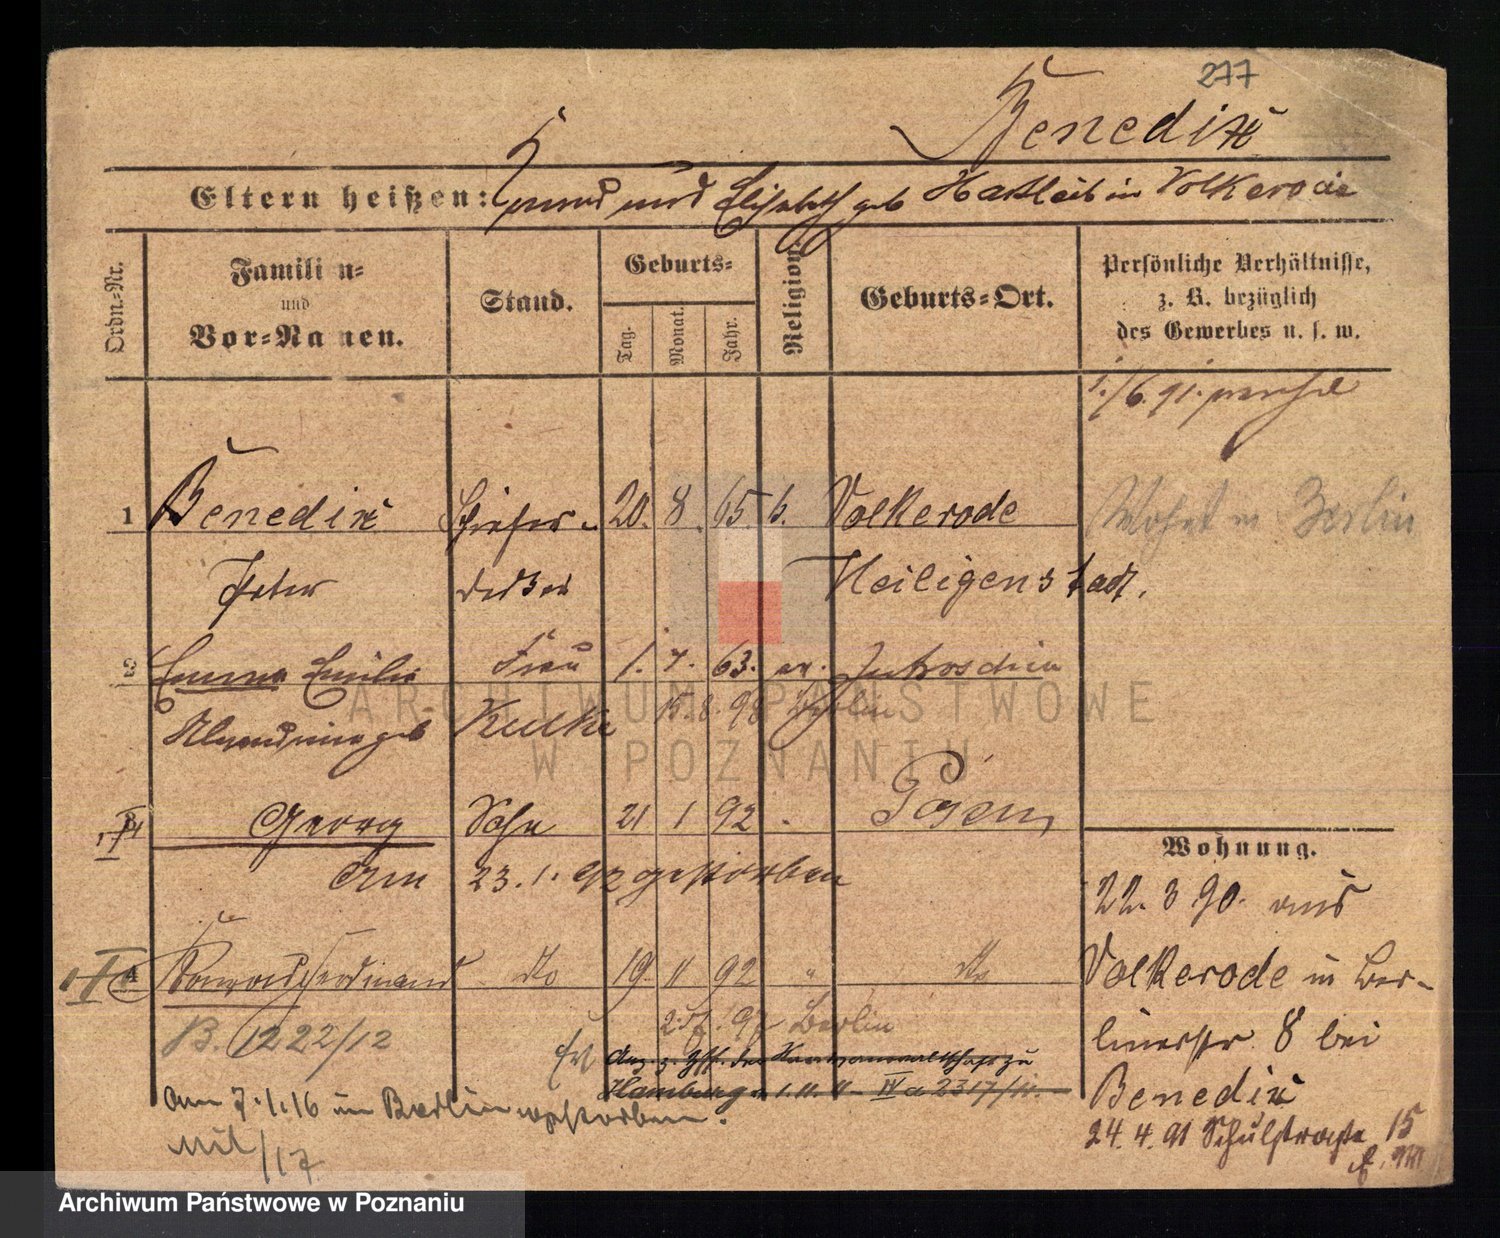 277
Benedix
Eltern heißen: und Elisabeth geb Hartleib in Volkerode
Ordn.-Nr.
Familien-
und
Vor-Namen.
Stand.
Geburts-
Tag.
Monat.
Jahr.
Religion
Geburts-Ort.
Persönliche Verhältnisse,
z. B. bezüglich
des Gewerbes u. s. w.
1./6. 91.
1 Benedix Schiefer- 20. 8. 65. k. Volkerode
Wohnt in Berlin
Peter decker Heiligenstadt.
2 Emma Emilie Frau 1. 7. 63. ev. Jutroschin
geb Kulke 15. 8. 98 Berlin
Georg Sohn 21 1 92 Posen
am 23. 1. 92 gestorben
Konrad Ferdinand do 19. 11 92 " do
97 Berlin
B. 1222/12
Hamburg v. 1. 11. 11 IV a 2317/11.
Am 7.1.16 in Berlin verstorben.
Mil/17
Wohnung.
22. 3 90. aus
Volkerode in Ber-
linerstr 8 bei
Benedix
24. 4. 91 Schulstraße 15
ARCHIWUM PAŃSTWOWE
W POZNANIU
Archiwum Państwowe w Poznaniu